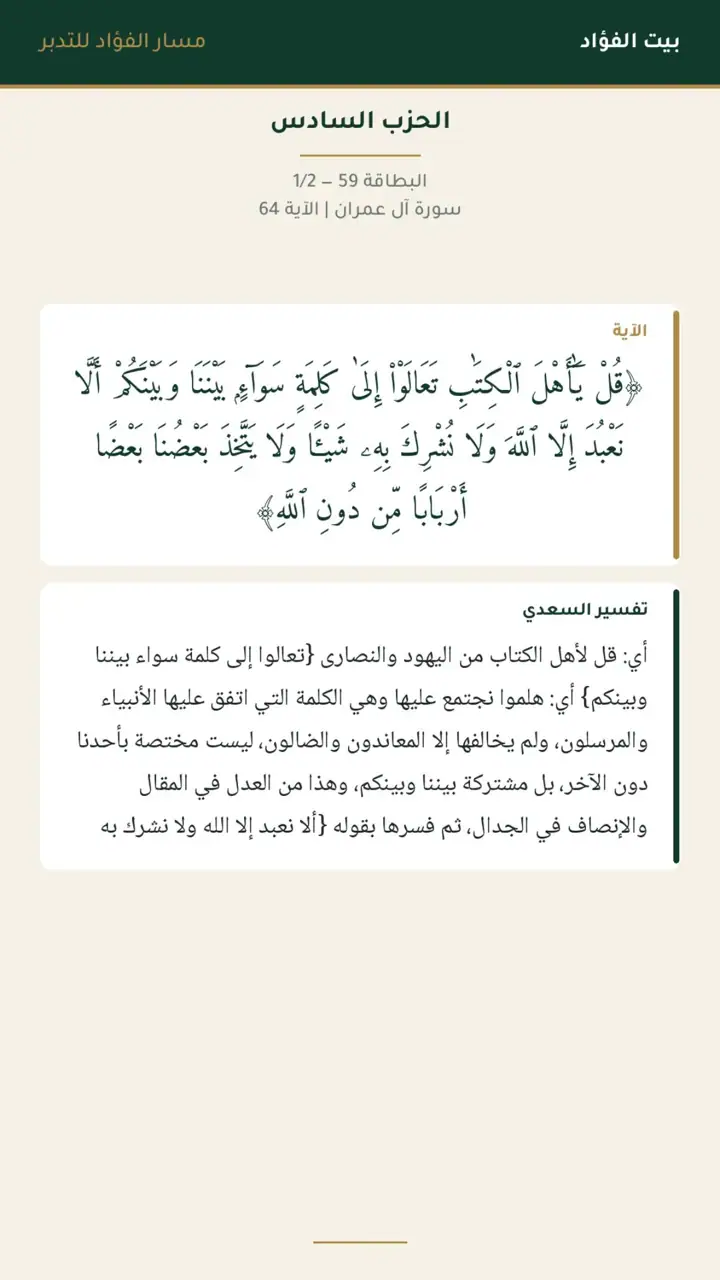 بيت الفؤاد
مسار الفؤاد للتدبر
الحزب السادس
البطاقة 59 – 1/2
سورة آل عمران | الآية 64
الآية
﴿قُلْ يَٰٓأَهْلَ ٱلْكِتَٰبِ تَعَالَوْا۟ إِلَىٰ كَلِمَةٍ سَوَآءٍۭ بَيْنَنَا وَبَيْنَكُمْ أَلَّا
نَعْبُدَ إِلَّا ٱللَّهَ وَلَا نُشْرِكَ بِهِۦ شَيْـًٔا وَلَا يَتَّخِذَ بَعْضُنَا بَعْضًا
أَرْبَابًا مِّن دُونِ ٱللَّهِ﴾
تفسير السعدي
أي: قل لأهل الكتاب من اليهود والنصارى {تعالوا إلى كلمة سواء بيننا
وبينكم} أي: هلموا نجتمع عليها وهي الكلمة التي اتفق عليها الأنبياء
والمرسلون، ولم يخالفها إلا المعاندون والضالون، ليست مختصة بأحدنا
دون الآخر، بل مشتركة بيننا وبينكم، وهذا من العدل في المقال
والإنصاف في الجدال، ثم فسرها بقوله {ألا نعبد إلا الله ولا نشرك به